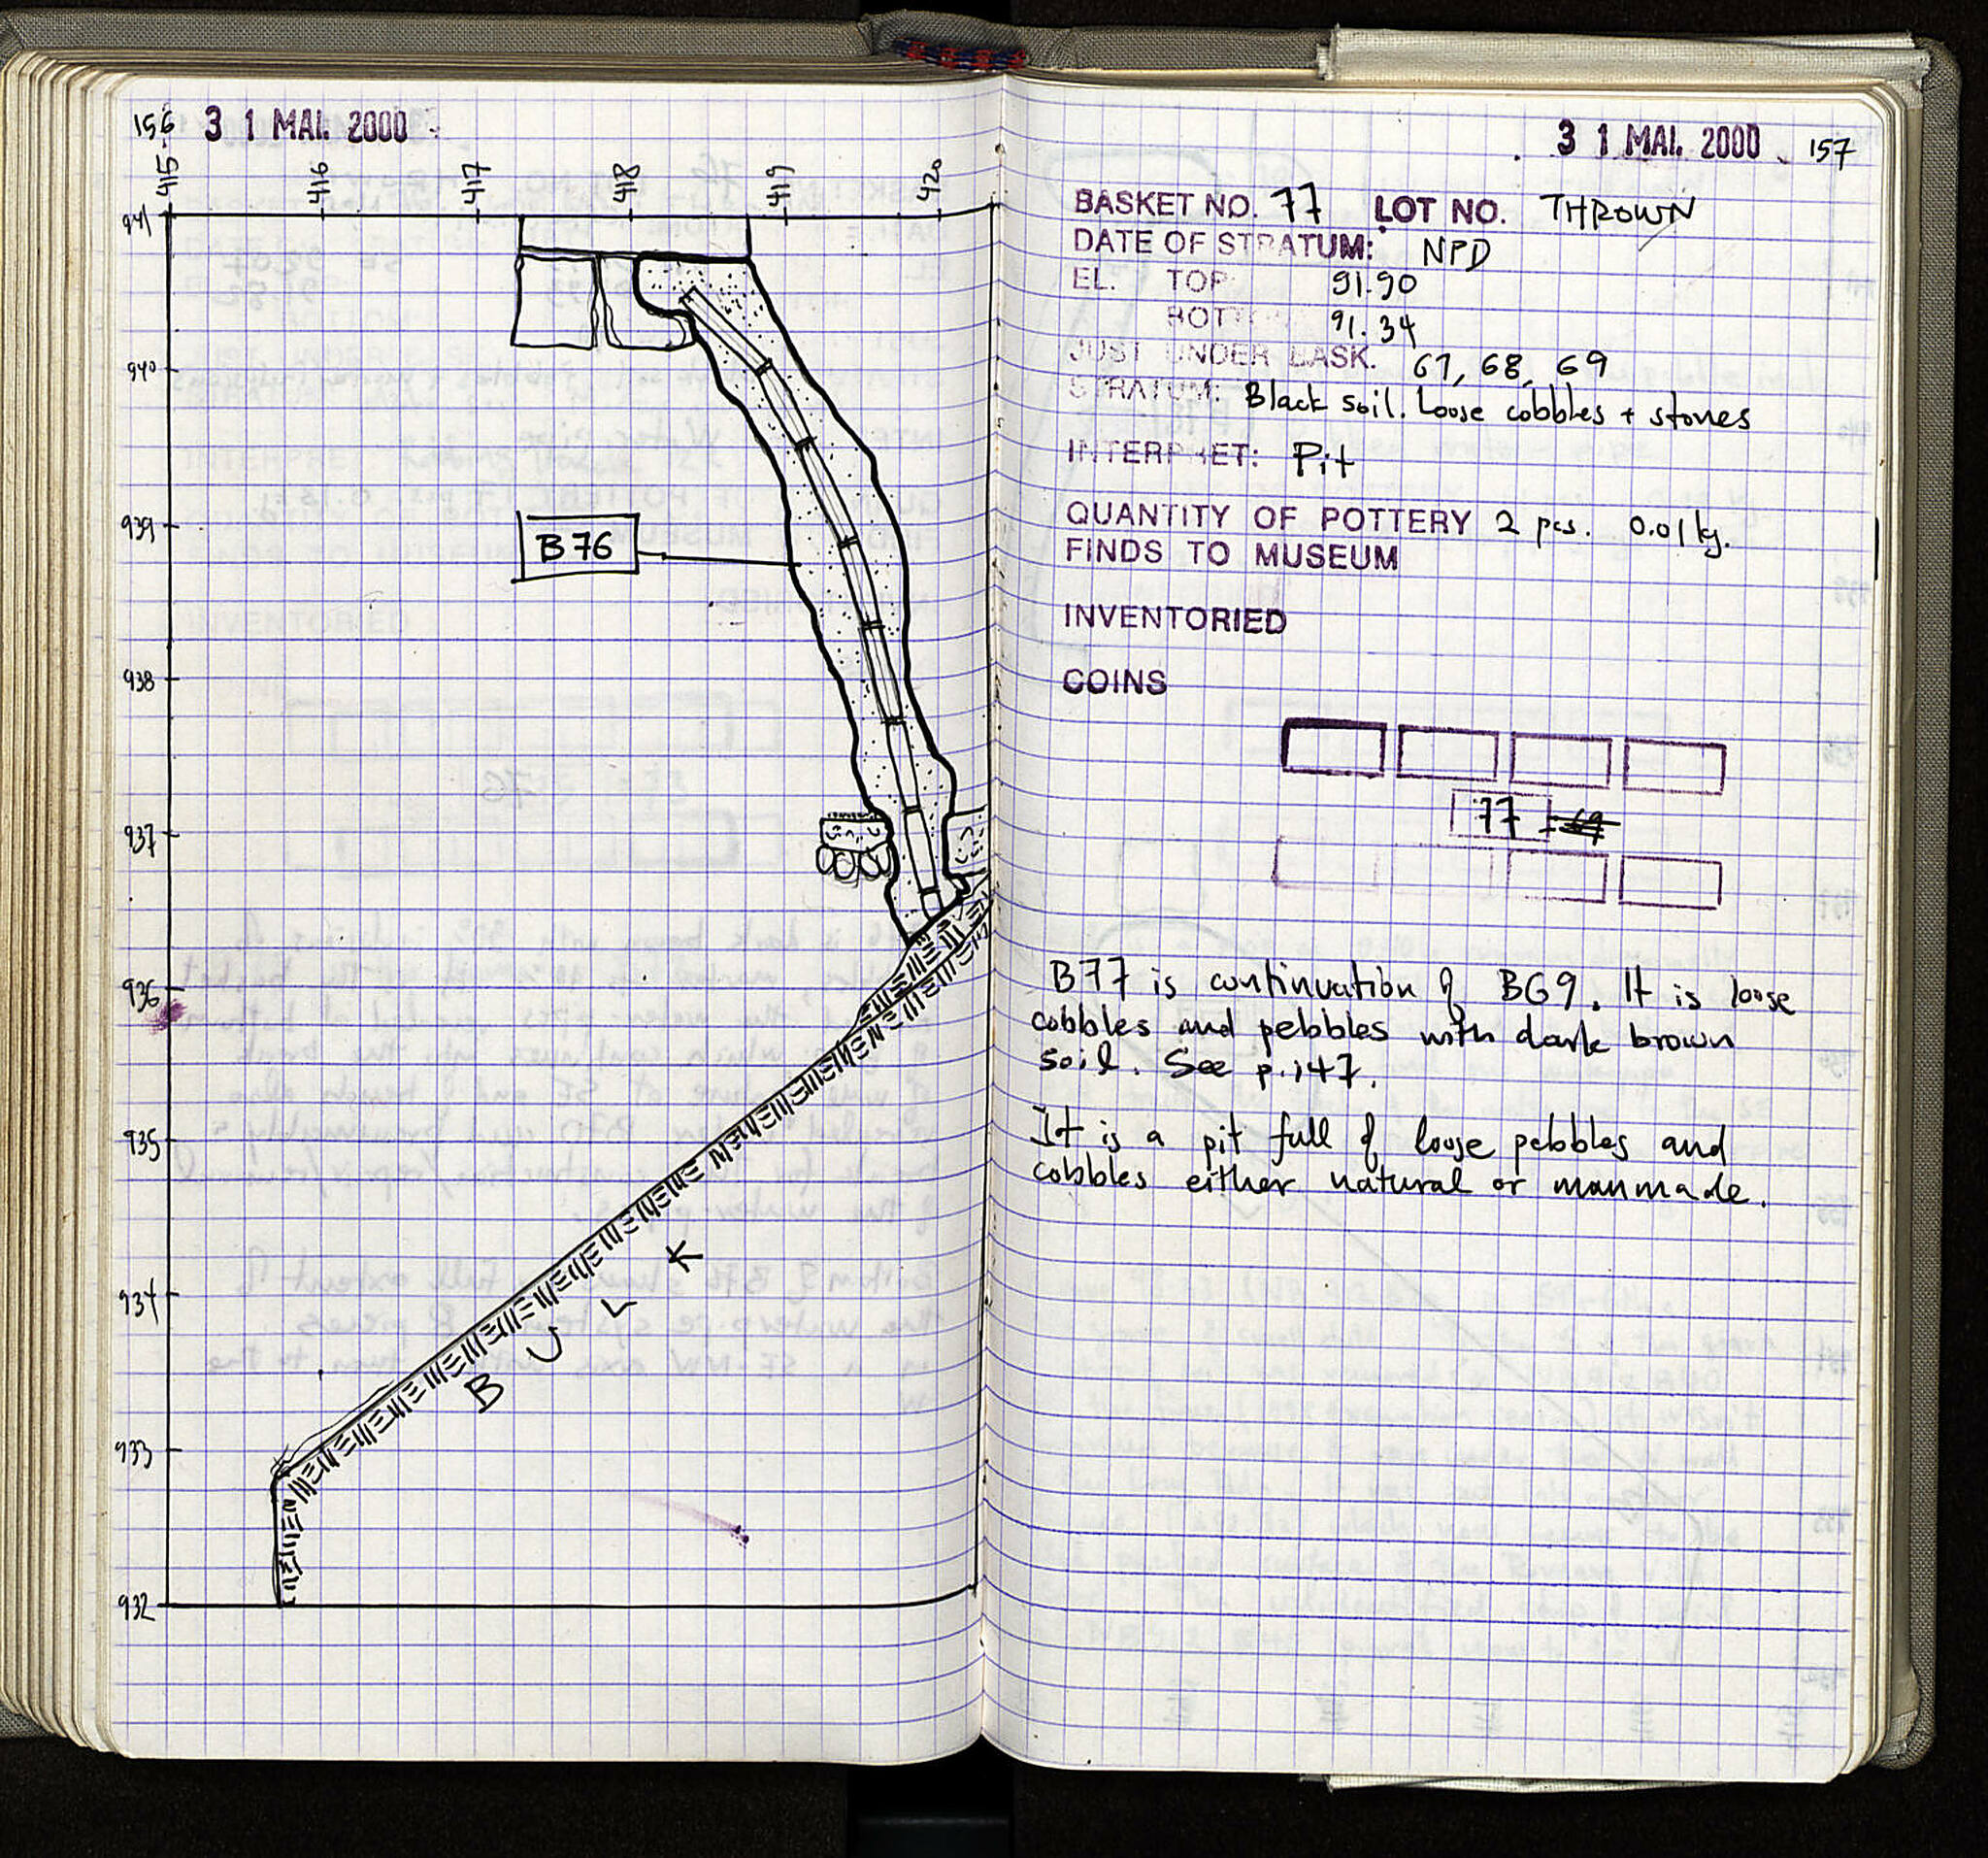 156 3 1 MAI. 2000
415 416 417 418 419 420
941
940
939
B76
938
937
936
935
934
933
932
B U L K
3 1 MAI. 2000 157
BASKET NO. 77 LOT NO. THROWN
DATE OF STRATUM: NPD
EL. TOP 91.90
BOTTOM 91.34
JUST UNDER BASK. 67, 68, 69
STRATUM: Black soil. Loose cobbles + stones
INTERPRET: Pit
QUANTITY OF POTTERY 2 pcs. 0.01 kg.
FINDS TO MUSEUM
INVENTORIED
COINS
77
B77 is continuation of B69. It is loose
cobbles and pebbles with dark brown
soil. See p.147.
It is a pit full of loose pebbles and
cobbles either natural or manmade.